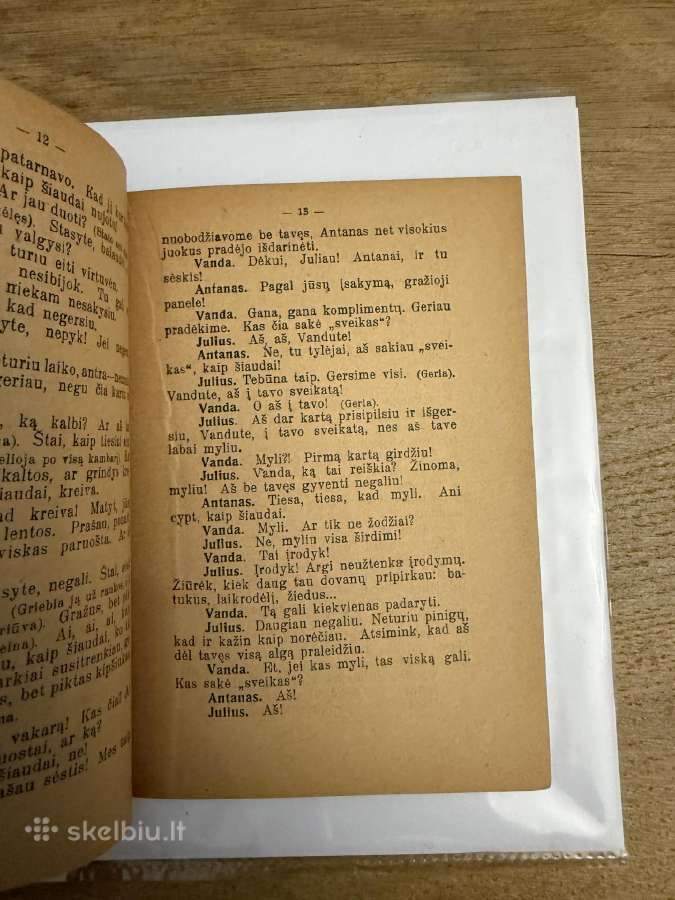 — 12 —
patarnavo. Kad jį
kaip šiaudai
Ar jau duoti?
Stasyte,
valgysi?
turiu eiti virtuvėn.
nesibijok. Tu
niekam nesakysiu.
kad negersiu.
nepyk! Jei
turiu laiko,
geriau, negu čia
ką kalbi? Ar
Štai, kaip tiesiai
po visą kambarį).
kaltos, ar grindys
šiaudai, kreiva.
kreiva! Matyt,
lentos. Prašau,
viskas paruošta.
negali. Štai,
(Griebia ją už rankos,
Gražus, bet
Ai, ai, ai,
kaip šiaudai,
susitrenkiau,
bet piktas
vakarą! Kas čia?
ar ką?
šiaudai, ne!
sėstis! Mes
— 13 —
nuobodžiavome be tavęs, Antanas net visokius
juokus pradėjo išdarinėti.
Vanda. Dėkui, Juliau! Antanai, ir tu
sėskis!
Antanas. Pagal jūsų įsakymą, gražioji
panele!
Vanda. Gana, gana komplimentų. Geriau
pradėkime. Kas čia sakė „sveikas“?
Julius. Aš, aš, Vandute!
Antanas. Ne, tu tylėjai, aš sakiau „svei-
kas“, kaip šiaudai!
Julius. Tebūna taip. Gersime visi. (Geria).
Vandute, aš į tavo sveikatą!
Vanda. O aš į tavo! (Geria).
Julius. Aš dar kartą prisipilsiu ir išger-
siu, Vandute, į tavo sveikatą, nes aš tave
labai myliu.
Vanda. Myli?! Pirmą kartą girdžiu!
Julius. Vanda, ką tai reiškia? Žinoma,
myliu! Aš be tavęs gyventi negaliu!
Antanas. Tiesa, tiesa, kad myli. Ani
cypt, kaip šiaudai.
Vanda. Myli. Ar tik ne žodžiai?
Julius. Ne, myliu visa širdimi!
Vanda. Tai įrodyk!
Julius. Įrodyk! Argi neužtenka įrodymų.
Žiūrėk, kiek daug tau dovanų pripirkau: ba-
tukus, laikrodėlį, žiedus...
Vanda. Tą gali kiekvienas padaryti.
Julius. Daugiau negaliu. Neturiu pinigų,
kad ir kažin kaip norėčiau. Atsimink, kad aš
dėl tavęs visą algą praleidžiu.
Vanda. Et, jei kas myli, tas viską gali.
Kas sakė „sveikas“?
Antanas. Aš!
Julius. Aš!
skelbiu.lt